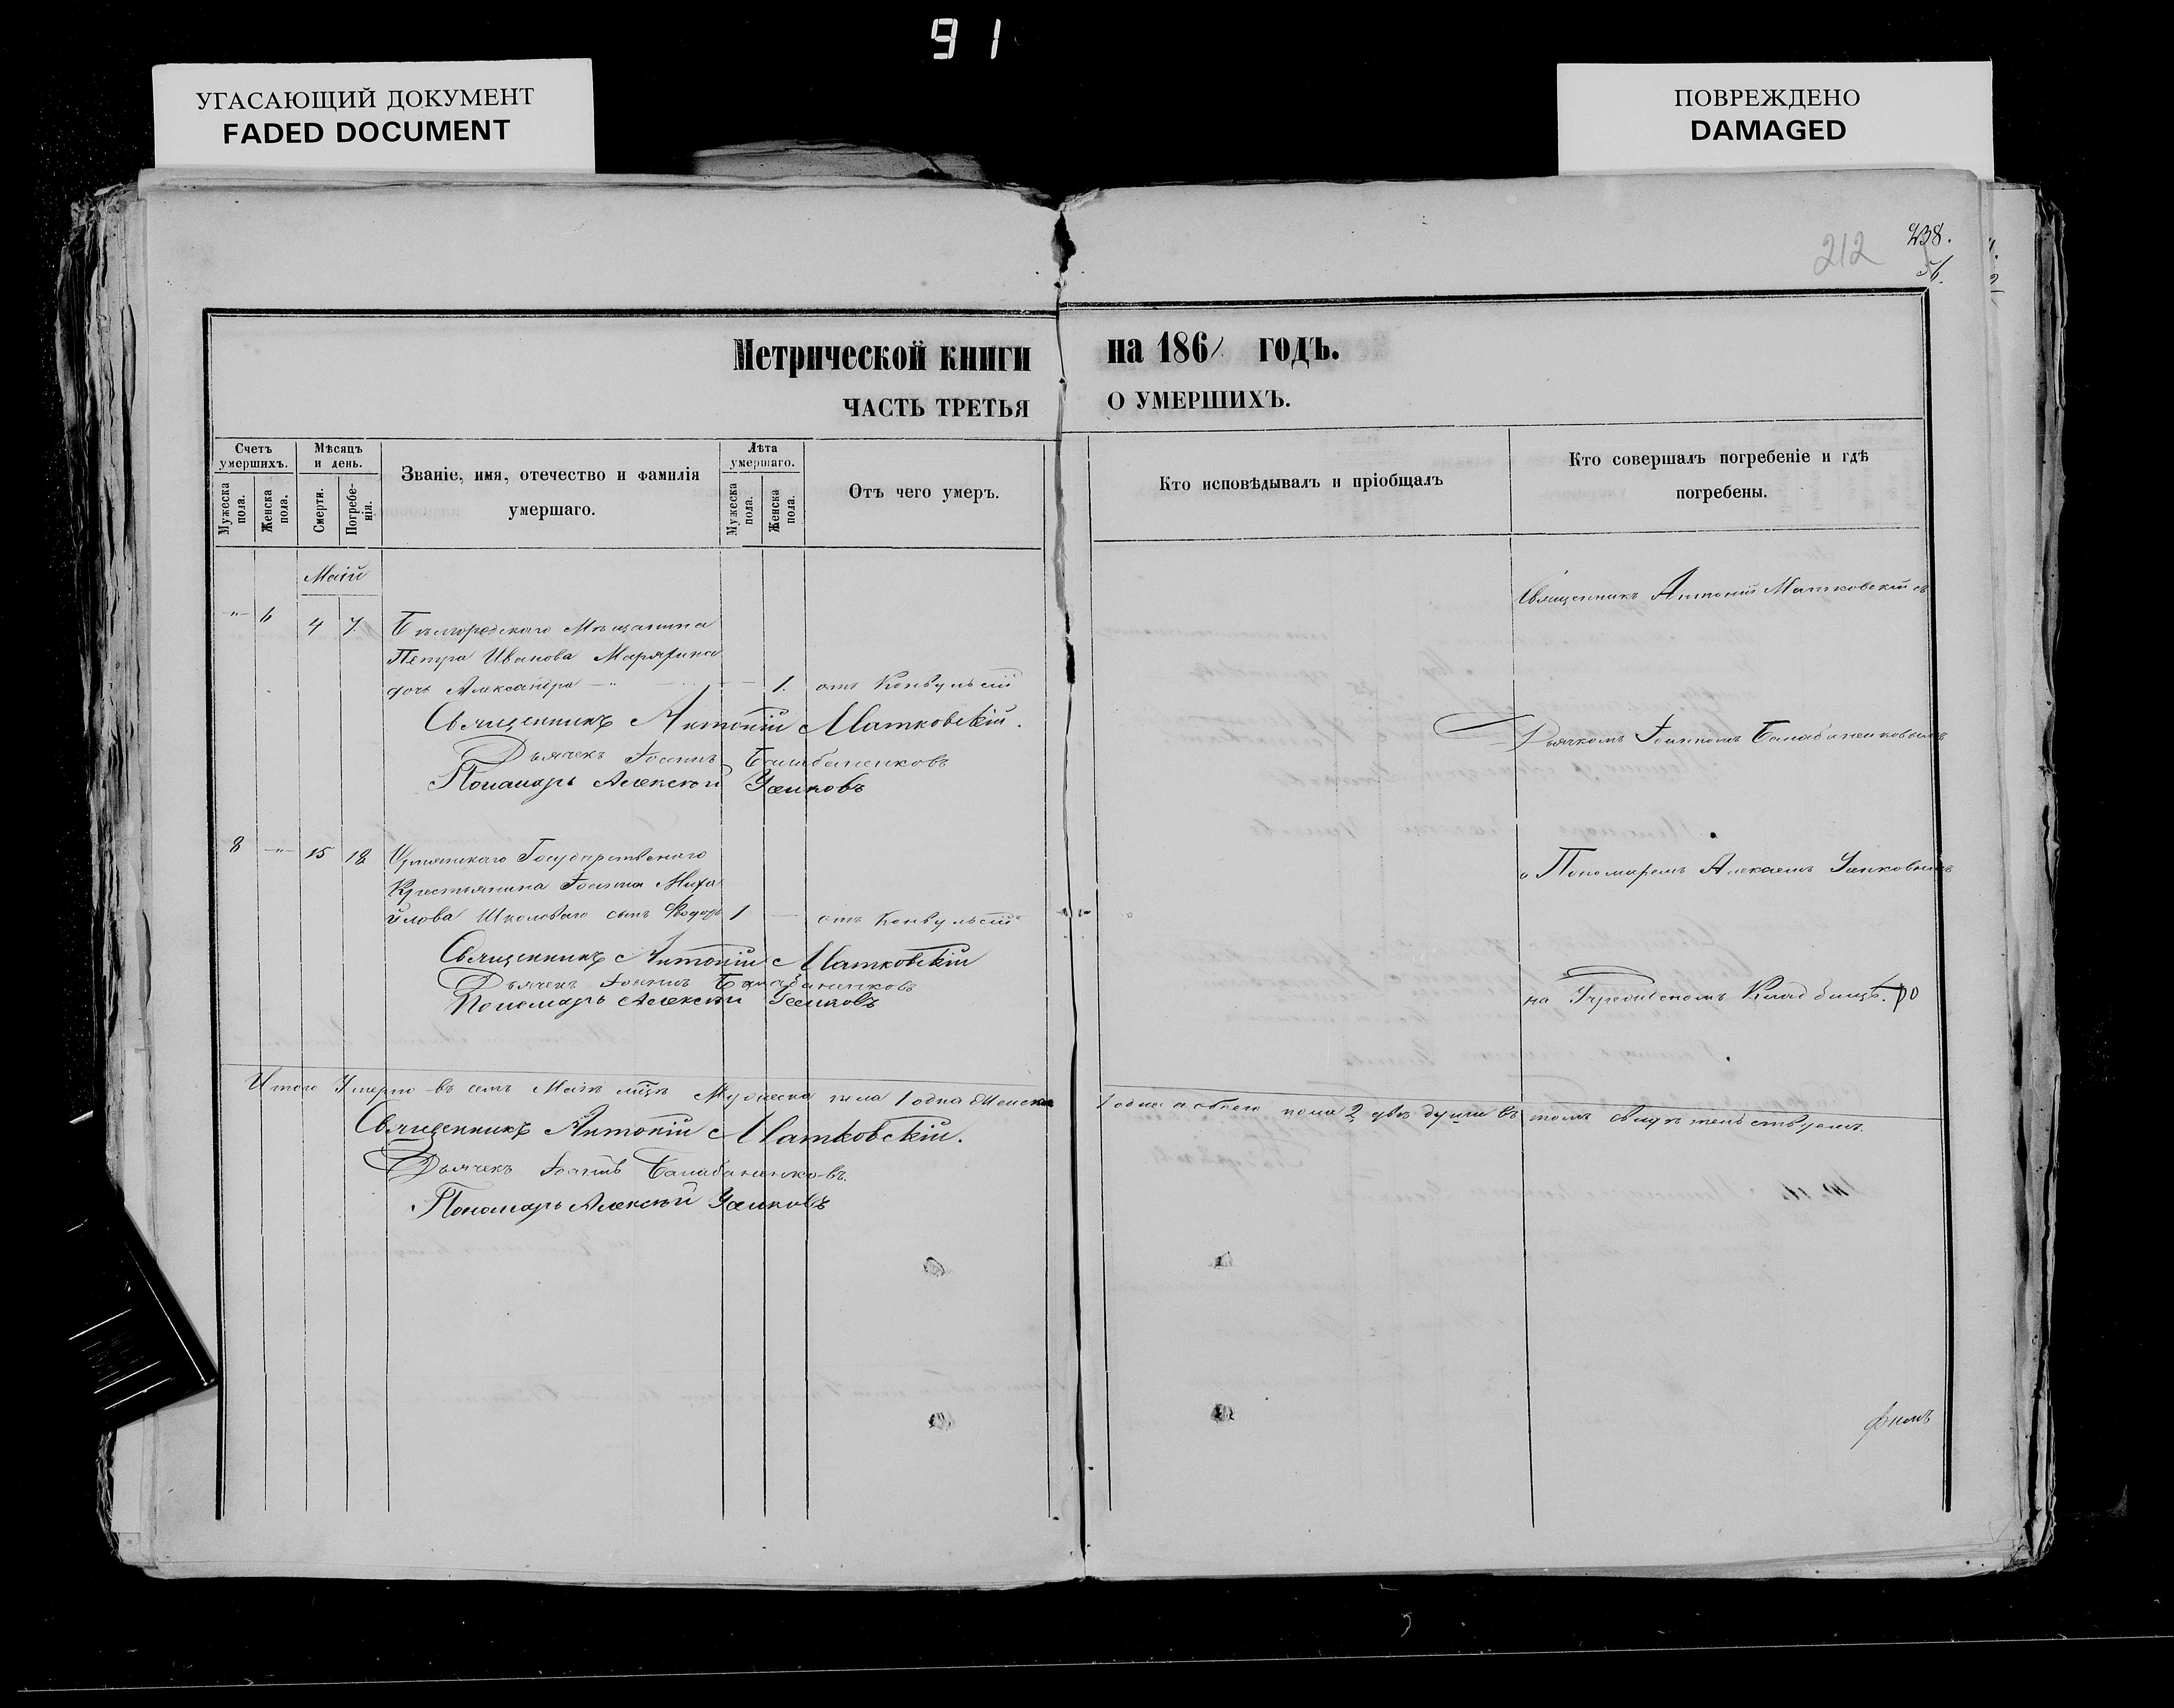 91
УГАСАЮЩИЙ ДОКУМЕНТ
FADED DOCUMENT
ПОВРЕЖДЕНО
DAMAGED
212
238.
56.
Метрической книги на 1861 годъ.
ЧАСТЬ ТРЕТЬЯ О УМЕРШИХЪ.
Счетъ умершихъ.
Мужеска пола.
Женска пола.
Мѣсяцъ и день.
Смерти.
Погребенія.
Званіе, имя, отечество и фамилія
умершаго.
Лѣта умершаго.
Мужеска пола.
Женска пола.
Отъ чего умеръ.
Кто исповѣдывалъ и пріобщалъ
Кто совершалъ погребеніе и гдѣ
погребены.
Маій
Священникъ Антоній Матковскій съ
-"- 6 4 7. Бѣлгородскаго Мѣщанина
Петра Иванова
дочь Александра -"- 1. отъ Конвульсій
Священникъ Антоній Матковскій.
Дьячекъ Іоаннъ Балабаненковъ
Пономарь Алексѣй
Дьячкомъ Іоанномъ Балабаненковымъ
8 -"- 15 18 Государственнаго
Крестьянина Іоанна Миха
йлова Школоваго сынъ Ѳеодоръ 1 - отъ Конвульсій
и Пономаремъ Алексѣемъ
Священникъ Антоній Матковскій
Дьячекъ Іоаннъ Балабаненковъ
Пономарь Алексѣй
на Кладбищѣ.
Итого Умерло въ семъ Маіѣ мцѣ Мужеска пола 1 одна Женска 1 одна а обоего пола 2 двѣ души въ томъ свидѣтельствуемъ.
Священникъ Антоній Матковскій.
Дьячекъ Іоаннъ Балабаненковъ.
Пономарь Алексѣй